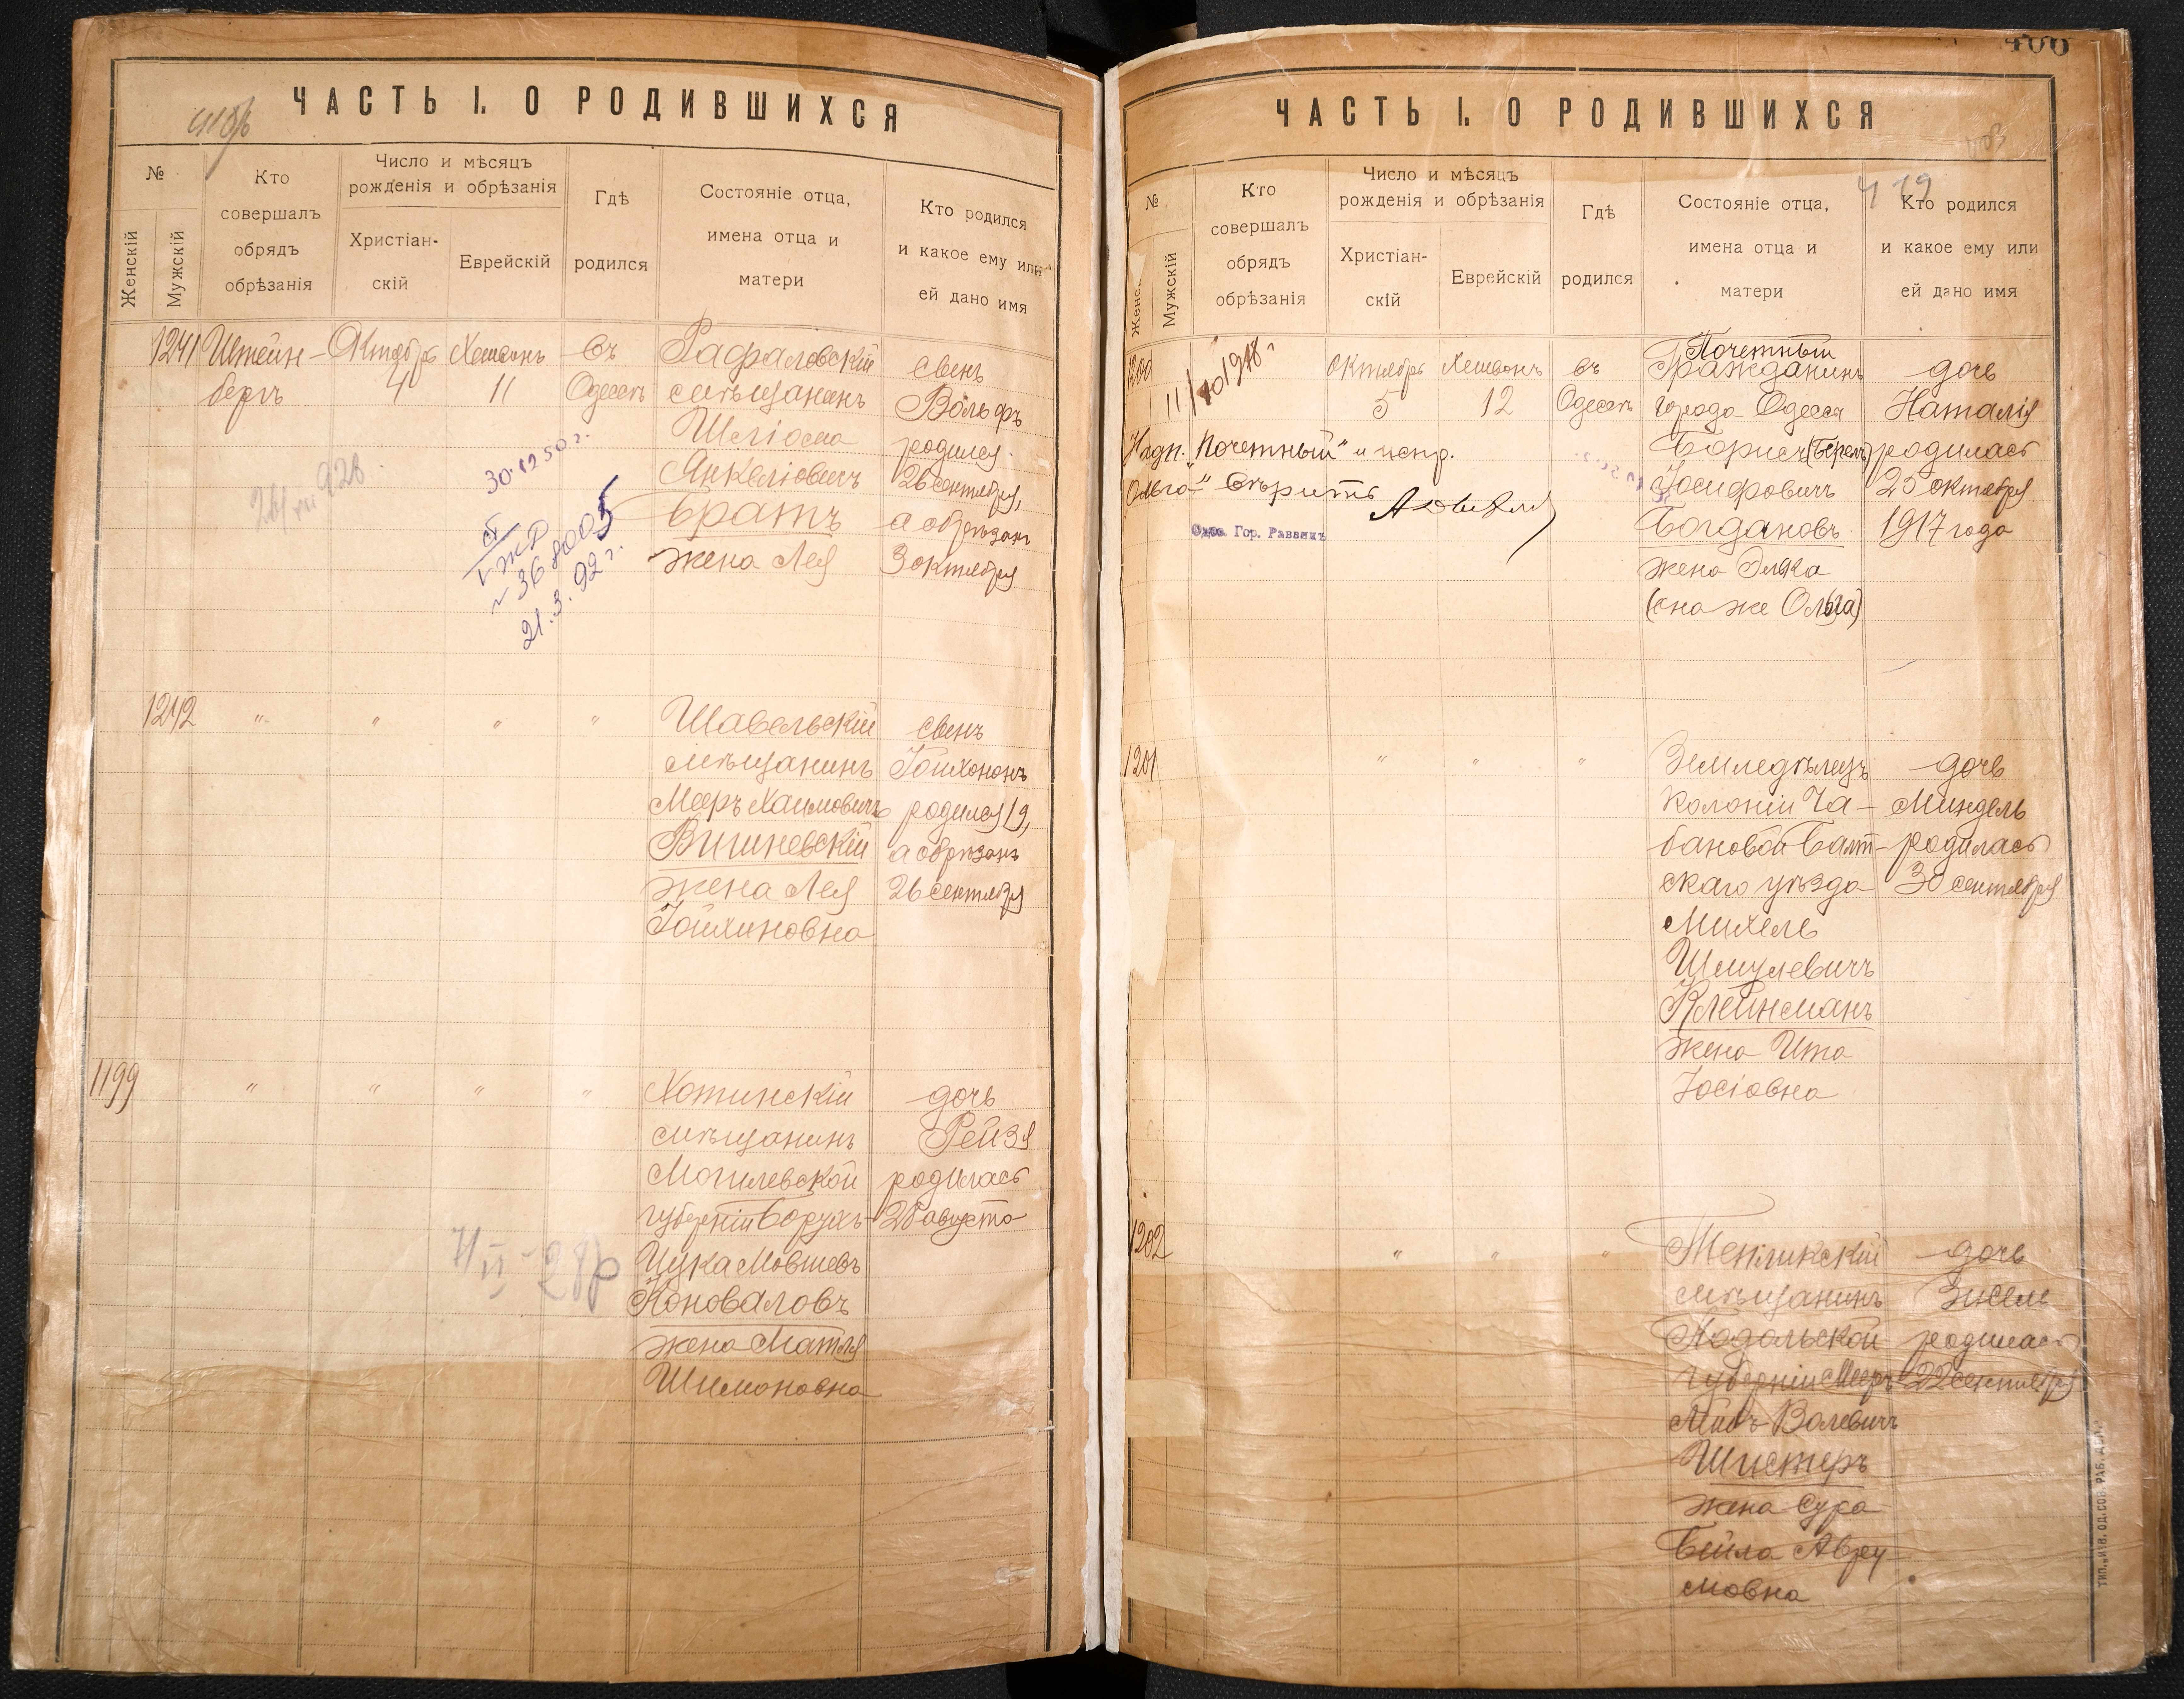 ЧАСТЬ I. О РОДИВШИХСЯ
№
Женскій
Мужскій
Кто
совершалъ
обрядъ
обрѣзанія
Число и мѣсяцъ
рожденія и обрѣзанія
Христіан-
скій
Еврейскій
Гдѣ
родился
Состояніе отца,
имена отца и
матери
Кто родился
и какое ему или
ей дано имя
1241
Штейн-
бергъ
Октябрь
4
Хешванъ
11
въ
Одессѣ
Рафаловскій
мѣщанинъ
Шліома
Янкеліовичъ
Братъ
жена Лея
сынъ
Вольфъ
родился
26 сентября,
а обрѣзанъ
3 октября
30.12 50 г.
21.3.92 г.
1242
" " " "
Шавельскій
мѣщанинъ
Мееръ Хаимовичъ
Вишневскій
жена Лея
Іойхиновна
сынъ
Іойхононъ
родился 19,
а обрѣзанъ
26 сентября
1199
" " " "
Хотинскій
мѣщанинъ
Могилевской
губерніи Борухъ-
Цука Мовшевъ
Коноваловъ
жена Матля
Шимоновна
дочь
Рейзя
родилась
28 августа
400
ЧАСТЬ I. О РОДИВШИХСЯ
№
Женс.
Мужскій
Кто
совершалъ
обрядъ
обрѣзанія
Число и мѣсяцъ
рожденія и обрѣзанія
Христіан-
скій
Еврейскій
Гдѣ
родился
Состояніе отца,
имена отца и
матери
Кто родился
и какое ему или
ей дано имя
1200
11/10 1918 г
октябрь
5
Хешванъ
12
въ
Одессѣ
Почетный
Гражданинъ
города Одессы
Борисъ (Берель)
Іосифовичъ
Богдановъ
жена Элька
(она же Ольга)
дочь
Наталія
родилась
25 октября
1917 года
Надп. "Почетный" и испр.
"Ольга" вѣрить
Одес. Гор. Раввинъ
1201
" " "
Земледѣлецъ
колоніи Ча-
бановой Балт-
скаго уѣзда
Михель
Шмулевичъ
Клейнманъ
жена Ита
Іосіовна
дочь
Миндель
родилась
30 сентября
1202
" " "
Тепликскій
мѣщанинъ
Подольской
губерніи Мееръ
Лейбъ Волевичъ
Шистеръ
жена Сура
Бейла Авру-
мовна
дочь
Зисель
родилась
22 сентября